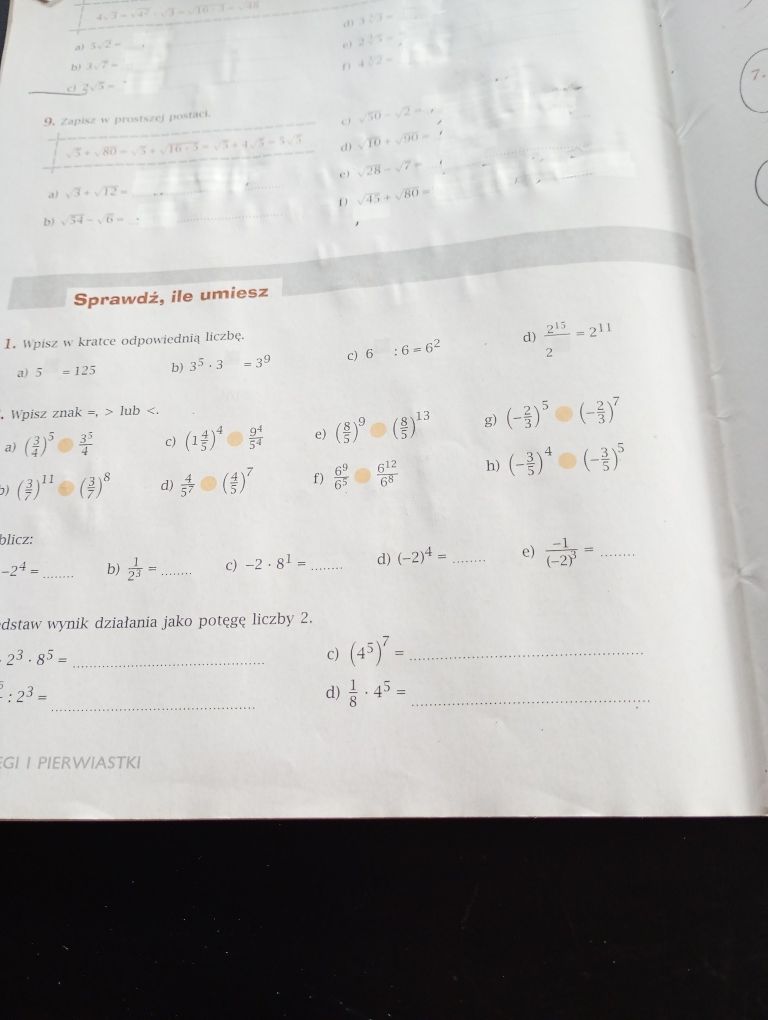 4√3 = √4² · √3 = √16 · 3 = √48
a) 5√2 =
b) 3√7 =
c) 2√5 =
d) 3∛3 =
e) 2∛5 =
f) 4∛2 =
9. Zapisz w prostszej postaci.
√5 + √80 = √5 + √16 · 5 = √5 + 4√5 = 5√5
a) √3 + √12 =
b) √54 − √6 =
c) √50 − √2 =
d) √10 + √90 =
e) √28 − √7 =
f) √45 + √80 =
7.
Sprawdź, ile umiesz
1. Wpisz w kratce odpowiednią liczbę.
a) 5   = 125   b) 3⁵ · 3   = 3⁹   c) 6   : 6 = 6²   d) 2¹⁵/2   = 2¹¹
. Wpisz znak =, > lub <.
a) (3/4)⁵   3⁵/4   c) (1 4/5)⁴   9⁴/5⁴   e) (8/5)⁹   (8/5)¹³   g) (−2/3)⁵   (−2/3)⁷
b) (3/7)¹¹   (3/7)⁸   d) 4/5⁷   (4/5)⁷   f) 6⁹/6⁵   6¹²/6⁸   h) (−3/5)⁴   (−3/5)⁵
blicz:
−2⁴ = ........   b) 1/2³ = ........   c) −2 · 8¹ = ........   d) (−2)⁴ = ........   e) −1/(−2)³ = ........
dstaw wynik działania jako potęgę liczby 2.
2³ · 8⁵ =   c) (4⁵)⁷ =
: 2³ =   d) 1/8 · 4⁵ =
GI I PIERWIASTKI